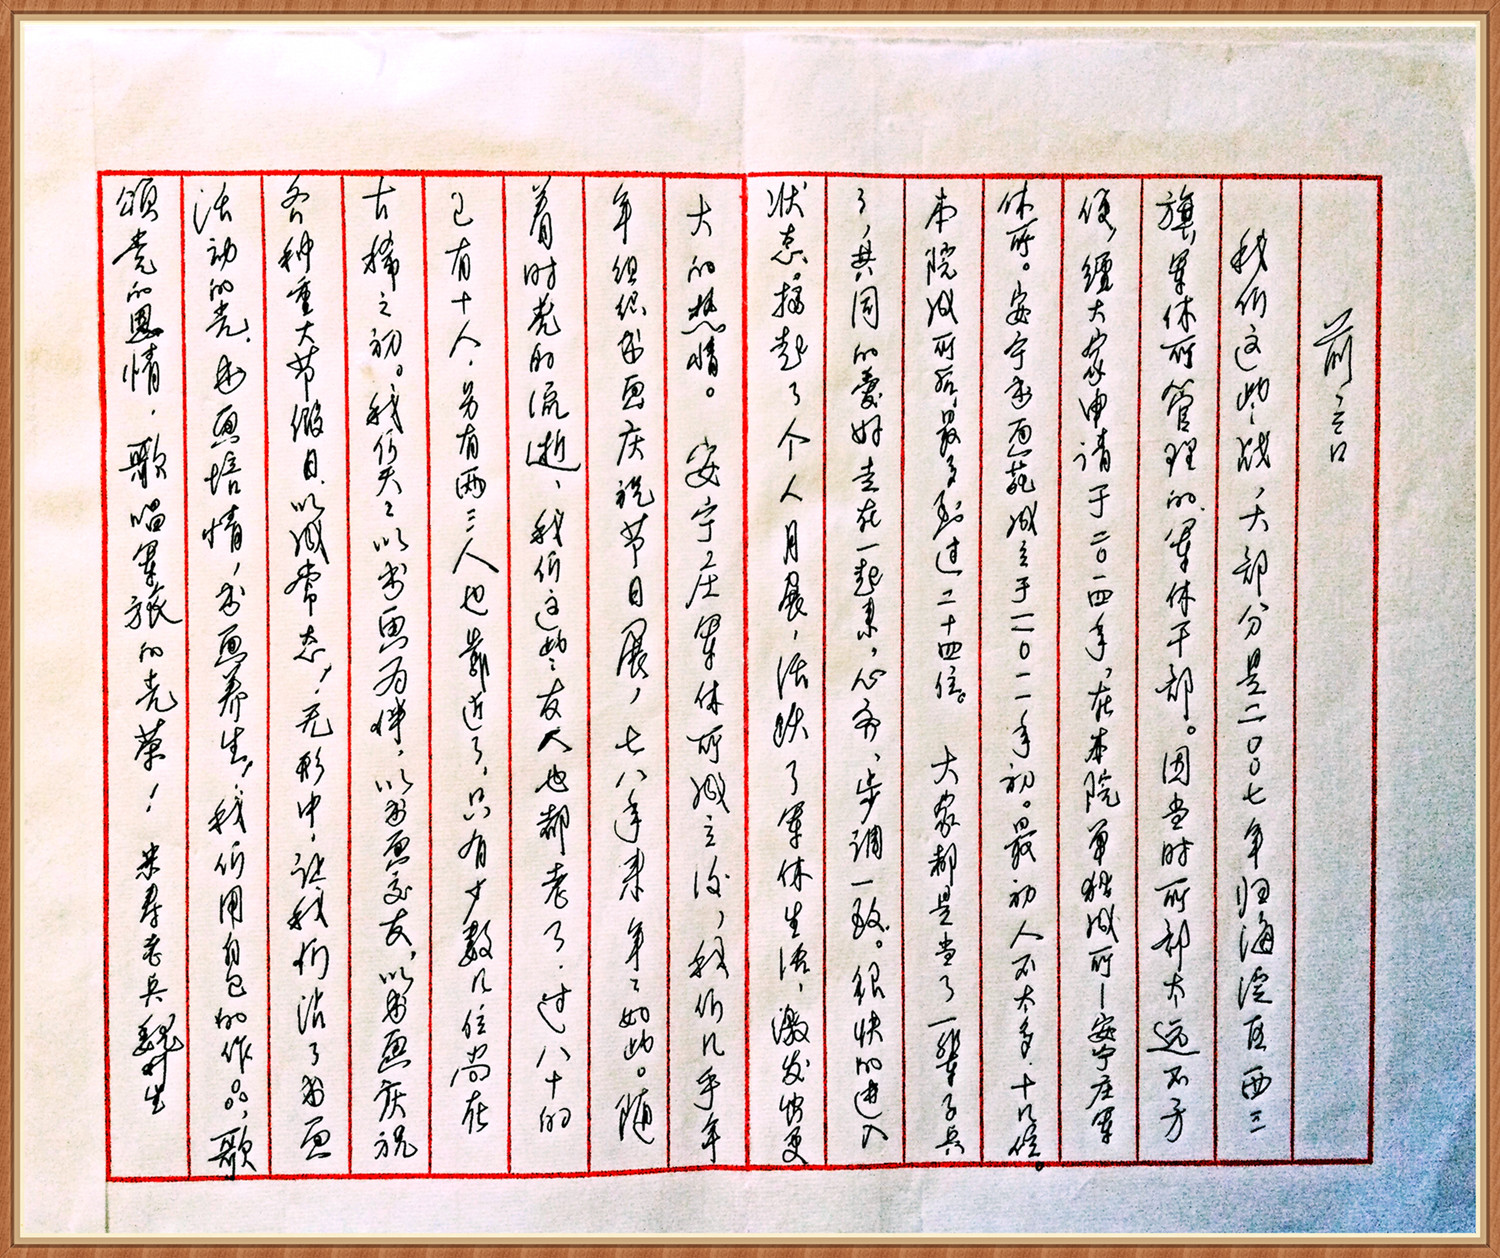 前言
我们这些战友大部分是二〇〇七年归海淀区西三
旗军休所管理的军休干部。因当时所部太远不方
便,经大家申请于二〇一四年,在本院单独成所—安宁庄军
休所。安宁书画苑成立于二〇一二年初。最初人不太多,十几位。
本院成所后,最多到过二十四位。 大家都是当了一辈子兵
了,共同的爱好走在一起来,心齐、步调一致。很快的进入
状态。搞起了个人月展,活跃了军休生活,激发出更
大的热情。 安宁庄军休所成立后,我们几乎年
年组织书画庆祝节日展,七八年来年年如此。随
着时光的流逝、我们这些友人也都老了.过八十的
已有十人,另有两三人也靠近了,只有少数几位尚在
古稀之初。我们天天以书画为伴,以书画交友,以书画庆祝
各种重大节假日,以成常态,无形中,让我们沾了书画
活动的光,书画培情,书画养生,我们用自己的作品,歌
颂党的恩情,歌唱军旅的光荣! 米寿老兵魏